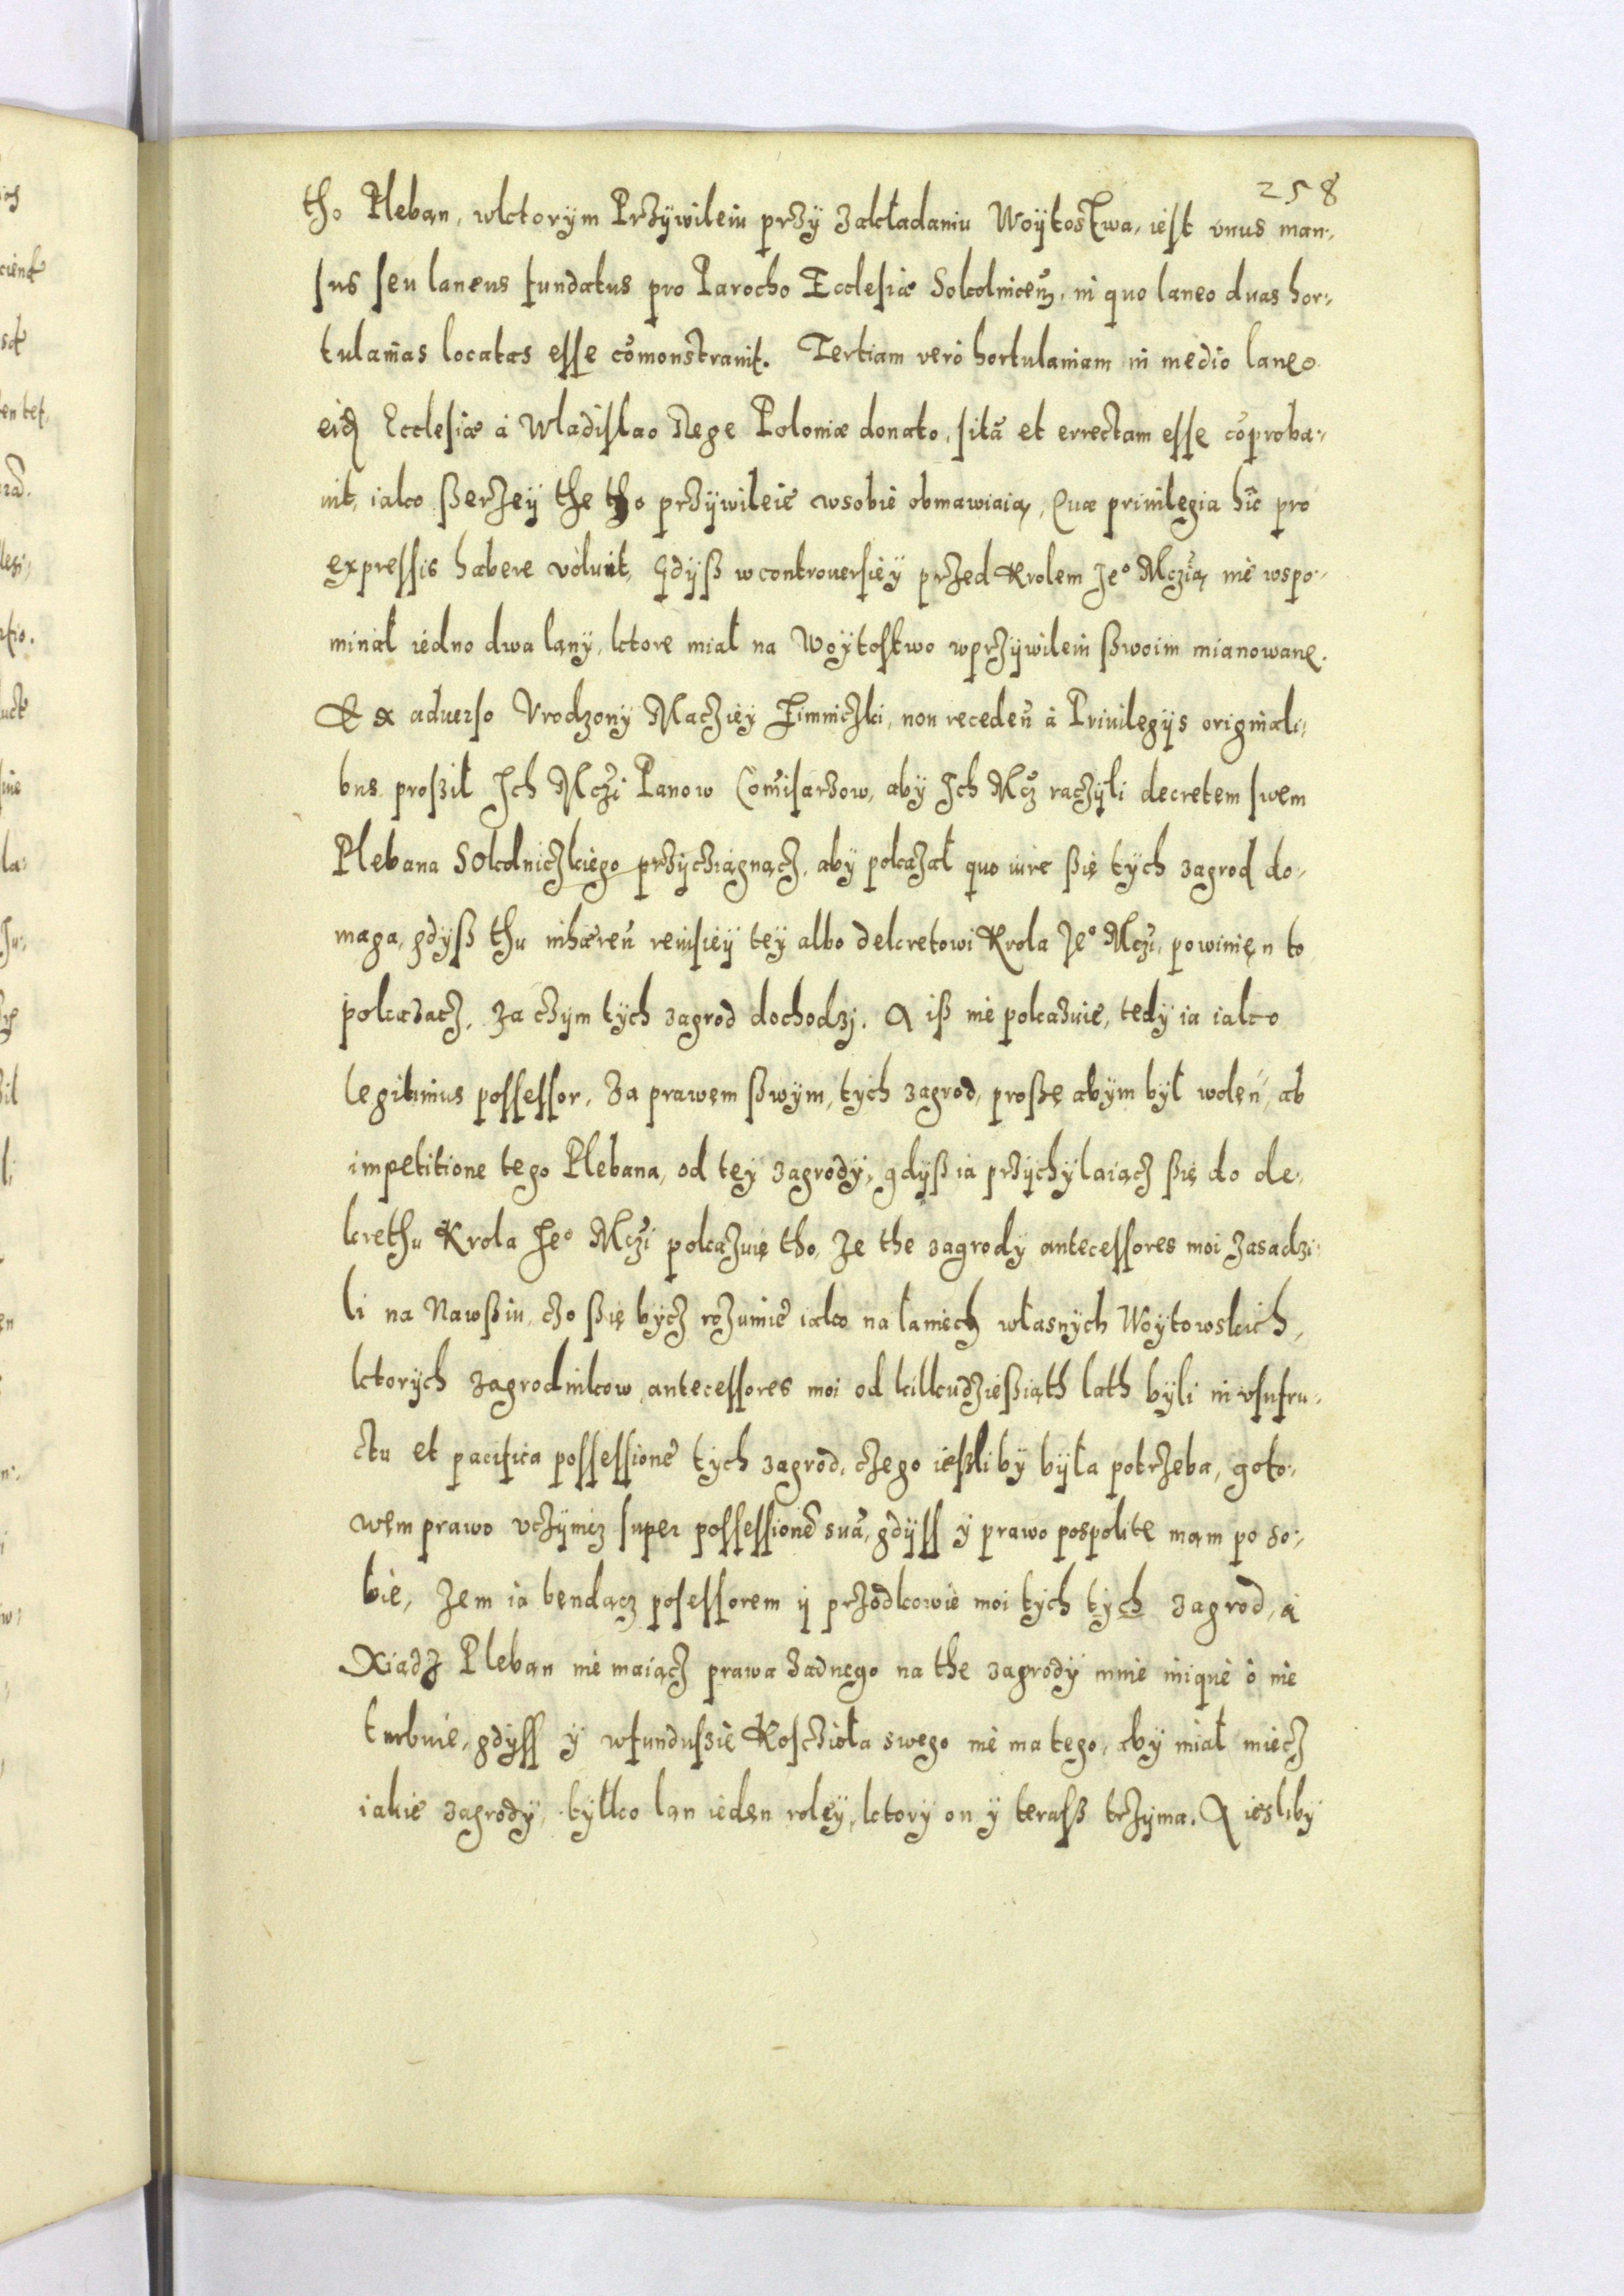 258
tho Pleban, wktorÿm Przÿwileiu przÿ zakładaniu Woÿtostwa, iest vnus man-
sus seu laneus fundatus pro Parocho Ecclesiæ Sokolniceñ, in quo laneo duas hor-
tulanias locatas esse cõmonstrauit. Tertiam verò hortulaniam in medio laneo
eidẽ Ecclesiæ à Wladislao Rege Poloniæ donato, sitã et errectam esse cõproba-
uit, iako ßerzeÿ the tho przÿwileie wsobie obmawiaią, Quæ priuilegia hîc pro
expressis habere voluit, Gdÿß wcontrouersieÿ przed Krolem Jeo Mczią nie wspo-
minał iedno dwa lanÿ, ktore miał na Woÿtostwo wprzÿwileiu ßwoim mianowane.
Et ex aduerso Vrodzonÿ Macziey Zimniczki, non recedeñ à Priuilegijs originali-
bus proszil Ich Mczi Panow Com̃isarzow, aby Ich Mcz raczÿli decretem swem
Plebana Sokolniczkiego przÿcziągnącz, abÿ pokazał quo iure ßię tÿch zagrod do-
maga, gdÿß thu inhæreñ reuisieÿ teÿ albo dekretowi Krola Jeo Mczi, powinien to
pokazacz, za czÿm tÿch zagrod dochodzi. A iß nie pokazuie, tedÿ ia iako
legitimus possessor, za prawem ßwÿm, tÿch zagrod, proßę abÿm bÿł woleñ, ab
impetitione tego Plebana, od teÿ zagrodÿ, gdÿß ia przÿchÿlaiącz ßię do de-
krethu Krola Jeo Mczi pokazuię tho, Ze the zagrodÿ antecessores moi zasadzi-
li na Nawßiu, czo ßię bÿcz rozumie iako na łaniech własnÿch Woÿtowskich,
ktorÿch zagrodnikow antecessores moi od kilkudzießiąth lath bÿli in vsufru-
ctu et pacifica possessionẽ tÿch zagrod, czego iesliby bÿła potrzeba, goto-
wem prawo vczÿnicz super possessionẽ suã, gdÿss ÿ prawo pospolite mam po so-
bie, Zem ia bendacz posessorem ÿ przodkowie moi tÿch tÿch zagrod, à
Xiadz Pleban nie maiącz prawa zadnego na the zagrodÿ mnie iniquè ò nie
turbuie, gdÿss ÿ wfundusie Kosczioła swego nie ma tego, abÿ miał miecz
iakie zagrodÿ, tÿlko lan ieden roleÿ, ktorÿ on ÿ terasß trzÿma. A iesliby